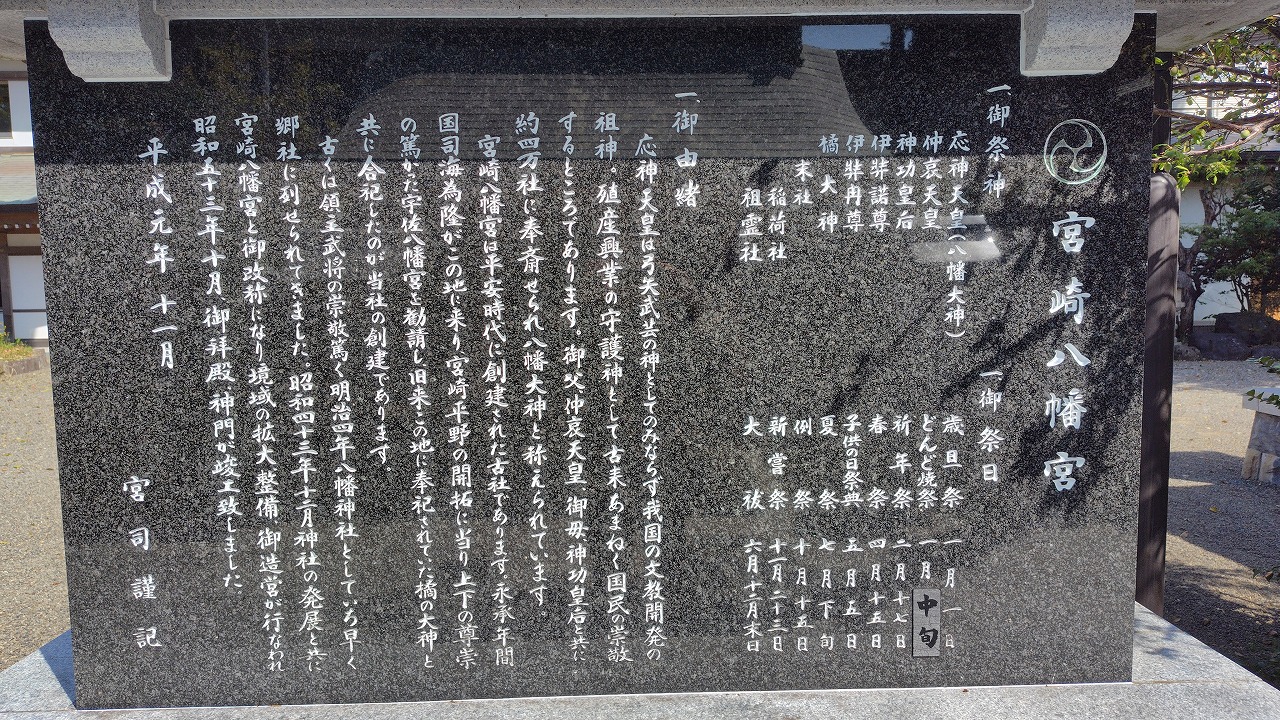 宮崎八幡宮
一、御祭神
応神天皇(八幡大神)
仲哀天皇
神功皇后
伊弉諾尊
伊弉冉尊
橘大神
末社
稲荷社
祖霊社
一、御祭日
歳旦祭 一月一日
どんど焼祭 一月中旬
祈年祭 二月十七日
春祭 四月十五日
子供の日祭典 五月五日
夏祭 七月下旬
例祭 十月十五日
新嘗祭 十一月二十三日
大祓 六月十二月末日
一、御由緒
応神天皇は弓矢武芸の神としてのみならず我国の文教開発の
祖神。殖産興業の守護神として古来あまねく国民の崇敬
するところであります。御父仲哀天皇 御母神功皇后と共に
約四万社に奉斎せられ八幡大神と称えられています。
宮崎八幡宮は平安時代に創建された古社であります。永承年間
国司海為隆がこの地に来り宮崎平野の開拓に当り上下の尊崇
の篤かった宇佐八幡宮を勧請し旧来この地に奉祀されていた橘の大神と
共に合祀したのが当社の創建であります。
古くは領主武将の崇敬篤く明治四年八幡神社としていち早く
郷社に列せられてきました。昭和四十三年十二月神社の発展と共に
宮崎八幡宮と御改称になり境域の拡大整備 御造営が行なわれ
昭和五十三年十月、御拝殿、神門が竣工致しました。
平成元年十一月
宮司謹記